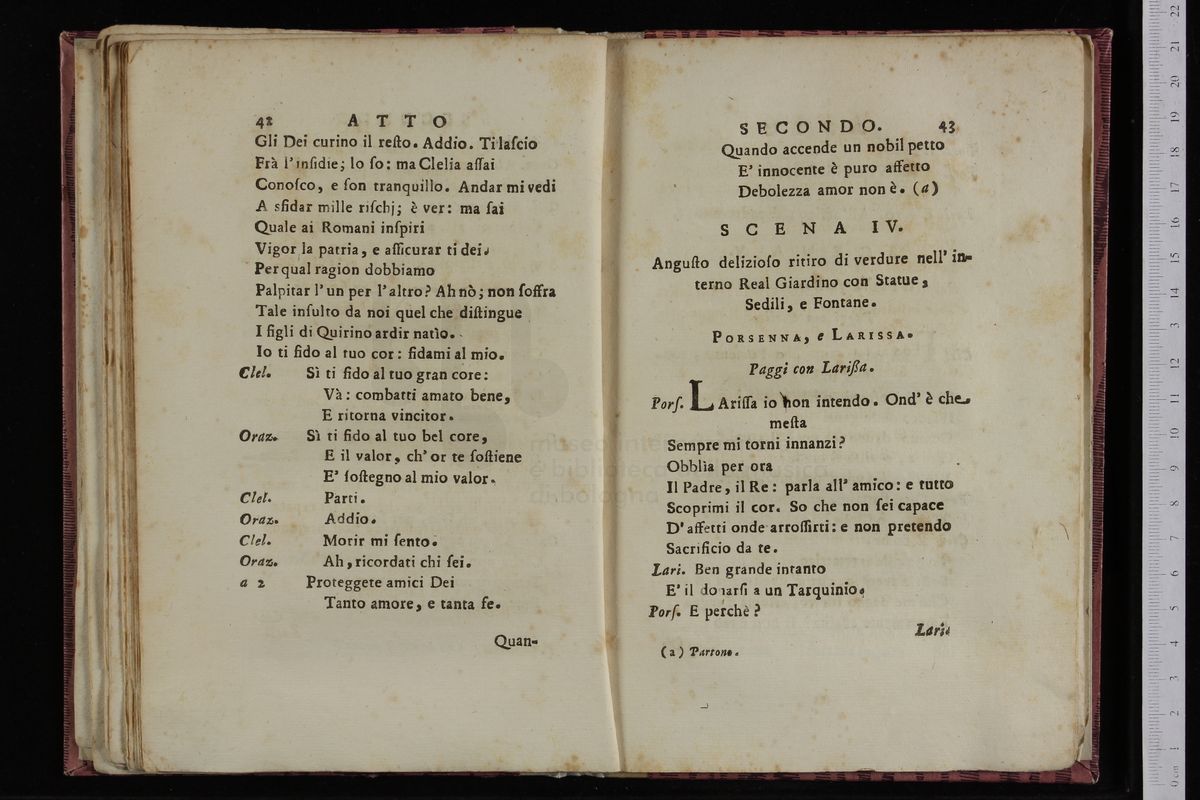 42 ATTO
Gli Dei curino il reſto. Addio. Ti laſcio
Frà l'inſidie; lo ſo: ma Clelia aſſai
Conoſco, e ſon tranquillo. Andar mi vedi
A sfidar mille riſchj; è ver: ma ſai
Quale ai Romani inſpiri
Vigor la patria, e aſſicurar ti dei.
Per qual ragion dobbiamo
Palpitar l'un per l'altro? Ah nò; non ſoffra
Tale inſulto da noi quel che diſtingue
I figli di Quirino ardir natìo.
Io ti fido al tuo cor: fidami al mio.
Clel. Sì ti fido al tuo gran core:
Và: combatti amato bene,
E ritorna vincitor.
Oraz. Sì ti fido al tuo bel core,
E il valor, ch'or te ſoſtiene
E' ſoſtegno al mio valor.
Clel. Parti.
Oraz. Addio.
Clel. Morir mi ſento.
Oraz. Ah, ricordati chi ſei.
a 2 Proteggete amici Dei
Tanto amore, e tanta fe.
Quan-
SECONDO. 43
Quando accende un nobil petto
E' innocente è puro affetto
Debolezza amor non è. (a)
SCENA IV.
Anguſto delizioſo ritiro di verdure nell' in-
terno Real Giardino con Statue,
Sedili, e Fontane.
PORSENNA, e LARISSA.
Paggi con Lariſſa.
Porſ. LAriſſa io non intendo. Ond' è che
meſta
Sempre mi torni innanzi?
Obblìa per ora
Il Padre, il Re: parla all' amico: e tutto
Scoprimi il cor. So che non ſei capace
D'affetti onde arroſſirti: e non pretendo
Sacrificio da te.
Lari. Ben grande intanto
E' il donarſi a un Tarquinio.
Porſ. E perchè?
Lari.
(a) Partono.
museo inte
e biblioteca sica
di bologna
22
21
20
19
18
17
16
15
14
13
12
11
10
9
8
7
6
5
4
3
2
1
0 cm